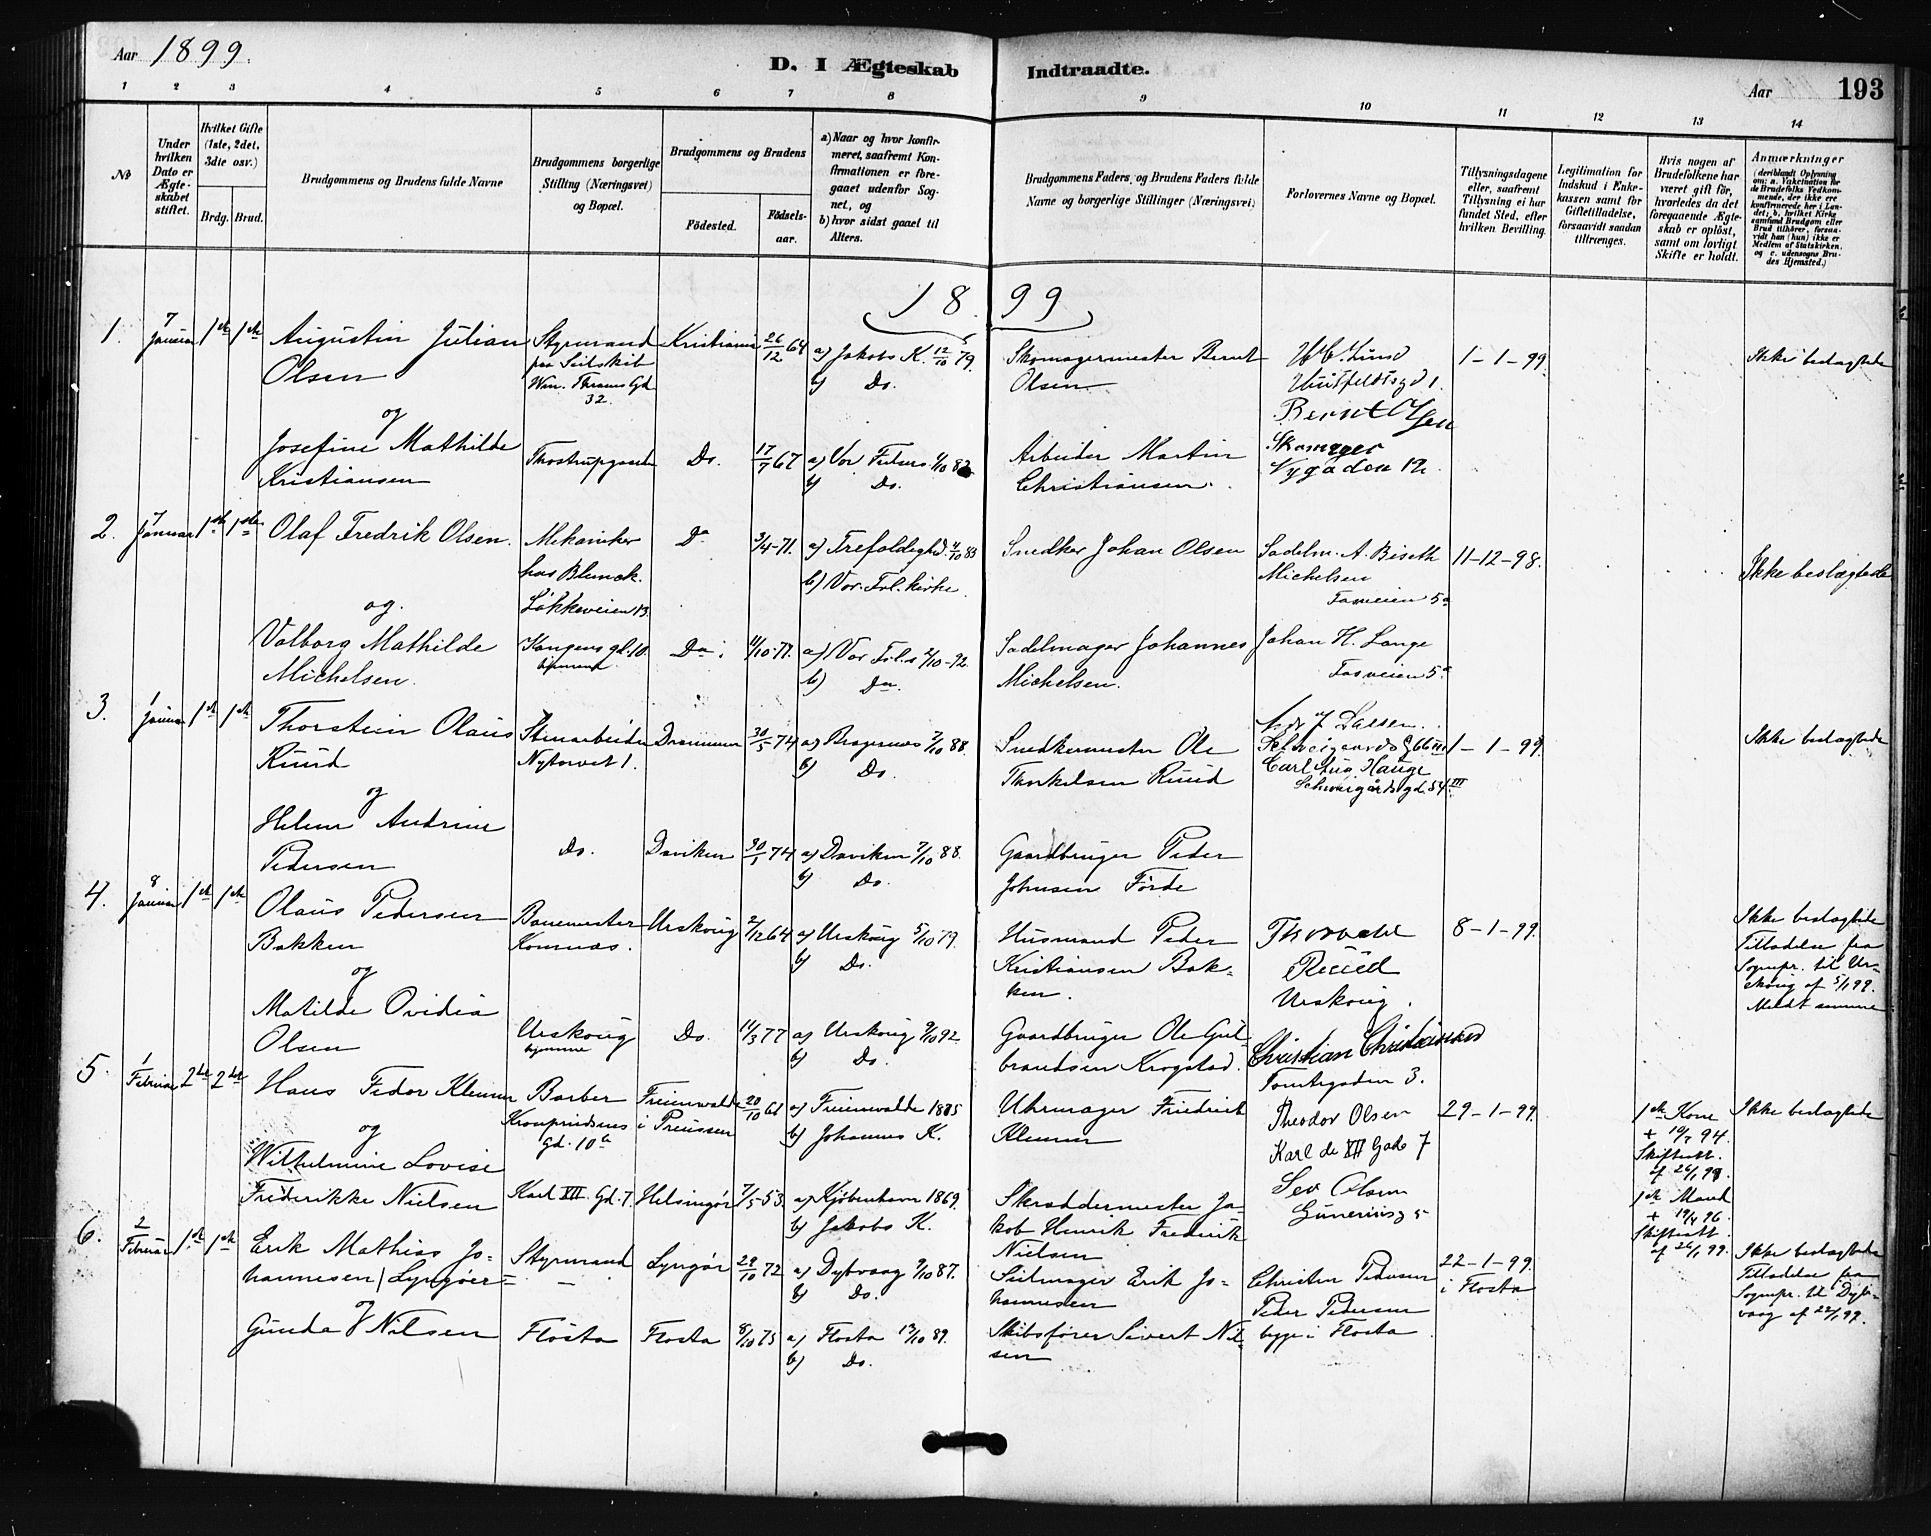 Aar 1899.
D. I Ægteskab Indtraadte.
Aar 193
1 2 3 4 5 6 7 8 9 10 11 12 13 14
No
Under hvilken Dato er Ægteskabet stiftet.
Hvilket Gifte (1ste, 2det, 3die osv.)
Brdg. Brud.
Brudgommens og Brudens fulde Navne
Brudgommens borgerlige Stilling (Næringsvei) og Bopæl.
Brudgommens og Brudens
Födested.
Födsels-aar.
a) Naar og hvor konfirmeret, saafremt Konfirmationen er foregaaet udenfor Sognet, og
b) hvor sidst gaaet til Alters.
Brudgommens Faders, og Brudens Faders fulde Navne og borgerlige Stillinger (Næringsvei)
Forlovernes Navne og Bopæl.
Tillysningsdagene eller, saafremt Tillysning ei har fundet Sted, efter hvilken Bevilling.
Legitimation for Indskud i Enkekassen samt for Giftetilladelse, forsaavidt saadan tiltrænges.
Hvis nogen af Brudefolkene har været gift før, hvorledes da det foregaaende Ægteskab er opløst, samt om lovligt Skifte er holdt.
Anmærkninger (deriblandt Oplysning om: a. Vakcination for de Brudefolks Vedkommende, der ikke ere konfirmerede her i Landet; b. hvilket Kirkesamfund Brudgom eller Brud tilhører, forsaavidt han (hun) ikke er Medlem af Statskirken, og c. udensogns Brudes Hjemsted.)
1899
1. 7 Januar 1ste 1ste Augustin Julian Olsen
Styrmand paa Seilskib Wm. Thranes Gd 32.
Kristiania 26/12 64 a) Jakobs K. 12/10 79. b) Do.
Skomagermester Bernt Olsen
Huitfeldtsgd 1.
Bernt Olsen
Skomager
Nygaden 12
1-1-99.
Ikke beslægtede
og
Josefine Mathilde Kristiansen
Do. 17/7 67 a) Vor Frelsers b) Do.
Arbeider Martin Christiansen.
2. 7 Januar 1ste 1ste Olaf Fredrik Olsen.
Mekaniker hos Blunck. Løkkeveien 13
Do 3/4-71. a) Trefoldighed. b) Vor. Frl. kirke
Snedker Johan Olsen
Sadelm. A. Biseth Michelsen
Fosveien 5a
11-12-98.
Ikke beslægtede
og.
Valborg Mathilde Michelsen.
Kongens gd. 10.
Do. 11/10-77. a) Vor Frl.s 2/10-92 b) Do.
Sadelmager Johannes Michelsen.
Johan H. Lange
Fosveien 5a
3. 1 Januar 1ste 1ste Thorstein Olaus Ruud
Stenarbeider Nytorvet 1.
Drammen 30/5 74 a) Bragernæs 7/10 88. b) Do.
Snedkermester Ole Thorkelsen Ruud
Larsen.
Schweigaards G 66 III
Carl Aug. Hauge
Schweigårds gd. 54 III
1-1-99.
Ikke beslægtede
og
Helene Andrine Pedersen
Do. Daviken 30/1 74 a) Daviken 7/10 88. b) Do.
Gaardbruger Peder Johnsen Förde
4. 8 Januar 1ste 1ste Olaus Pedersen Bakken
Banemester Komnæs.
Urskoug 2/12 64 a) Urskoug 5/10 79. b) Do.
Husmand Peder Kristiansen Bakken.
Thorvald Ruud Urskoug.
8-1-99.
Ikke beslægtede Tilladelse fra Sognepr. til Urskoug af 5/1 99. Meldt samme
og
Matilde Ovidia Olsen
Urskoug Do. 11/3 77 a) Urskoug 2/10 92. b) Do.
Gaardbruger Ole Gulbrandsen Krogstad.
Christian Christiansen
Tomtegaden 3.
5. 1 Februar 2det 2det Hans Fedor Klemm
Barber Kronprindsens Gd. 10b
Freienwalde i Preussen 20/10 61 a) Freienwalde 1875 b) Johannes K.
Uhrmager Friedrich Klemm
Theodor Olsen
Karl de XII Gade 7
29-1-99.
1ste Kone + 10/7 94. Skifteatt. af 26/1 99.
Ikke beslægtede
og
Wilhelmine Lovise Frederikke Nielsen
Karl XII. Gd. 7. Helsingør 7/5-53. a) Kjøbenhavn 1869. b) Jakobs K.
Skræddermester Jakob Henrik Frederik Nielsen
Sev Olsen
Gunerusg 5
1ste Mand + 19/4 96. Skifteatt. af 26/1 99.
6. 2 Februar 1ste 1ste Erik Mathias Johannesen / Lyngöer
Styrmand Lyngör 29/10 72 a) Dybvaag 9/10 87. b) Do.
Seilmager Erik Johannesen
Christen Pedersen
Peder Pedersen
begge i Flosta
22-1-99. i Flosta
Ikke beslægtede Tilladelse fra Sognepr. til Dybvaag af 22/1 99.
og
Gunda Nilsen
Flosta Flosta 8/10 75 a) Flosta 13/10 89. b) Do.
Skibsfører Sivert Nilsen